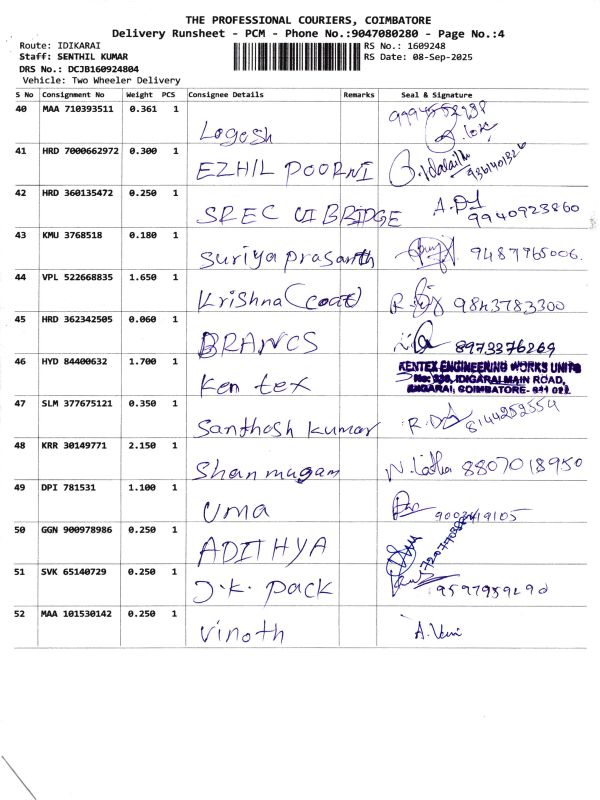 THE PROFESSIONAL COURIERS, COIMBATORE
Delivery Runsheet - PCM - Phone No.:9047080280 - Page No.:4
Route: IDIKARAI RS No.: 1609248
Staff: SENTHIL KUMAR RS Date: 08-Sep-2025
DRS No.: DCJB160924804
Vehicle: Two Wheeler Delivery
S No Consignment No Weight PCS Consignee Details Remarks Seal & Signature
40 MAA 710393511 0.361 1
Logesh
41 HRD 7000662972 0.300 1
EZHIL POORNI 9361401326
42 HRD 360135472 0.250 1
SREC UI BRIDGE 9940923860
43 KMU 3768518 0.180 1
Suriya prasanth 9487965006.
44 VPL 522668835 1.650 1
Krishna (coat) 9843783300
45 HRD 362342505 0.060 1
BRANCS 8973376269
46 HYD 84400632 1.700 1
Ken tex
KENTEX ENGINEERING WORKS UNIT
IDIGARAI MAIN ROAD,
IDIGARAI, COIMBATORE- 641 022.
47 SLM 377675121 0.350 1
Santhosh kumar 8144252554
48 KRR 30149771 2.150 1
Shanmugam N. Latha 8807018950
49 DPI 781531 1.100 1
Uma
50 GGN 900978986 0.250 1
ADITHYA
51 SVK 65140729 0.250 1
J.K. pack
52 MAA 101530142 0.250 1
Vinoth A. Veni